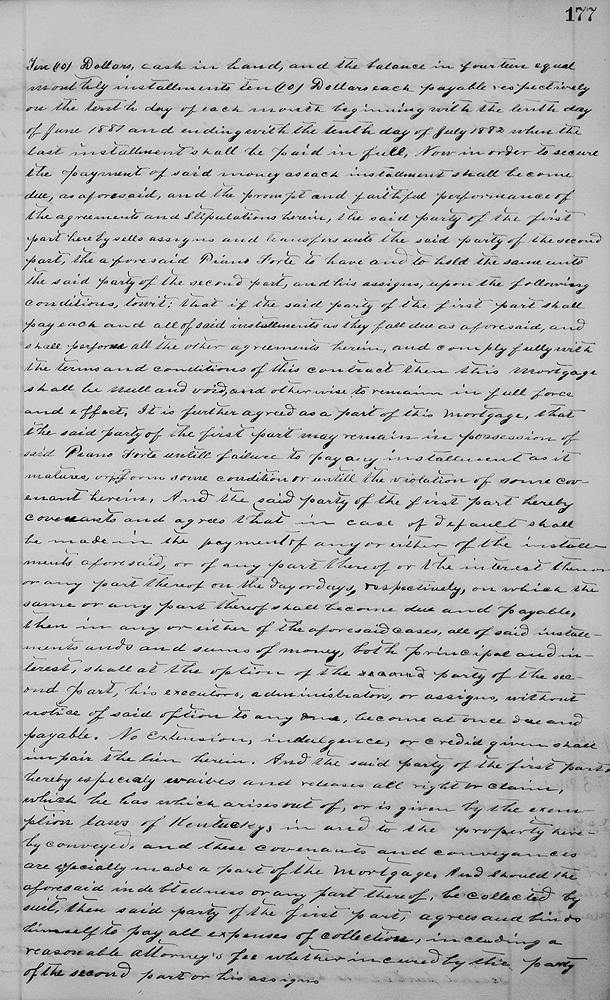 177
Ten (10) Dollars, cash in hand, and the balance in fourteen equal
monthly installments ten (10) Dollars each payable respectively
on the tenth day of each month beginning with the tenth day
of June 1881 and ending with the tenth day of July 1882 when the
last installment shall be paid in full, Now in order to secure
the payment of said money as each installment shall become
due, as aforesaid, and the prompt and faithful performance of
the agreements and Stipulations herein, the said party of the first
part hereby sells assigns and transfers unto the said party of the second
part, the aforesaid Piano Forte to have and to hold the same unto
the said party of the second part, and his assigns, upon the following
conditions, towit: that if the said party of the first part shall
pay each and all of said installments as they fall due as aforesaid, and
shall perform all the other agreements herein, and comply fully with
the terms and conditions of this contract then this Mortgage
shall be null and void, and otherwise to remain in full force
and effect, It is further agreed as a part of this Mortgage, that
the said party of the first part may remain in possession of
said Piano Forte untill failure to pay any installment as it
matures, or form some condition or untill the violation of some cov-
enant herein, And the said party of the first part hereby
covenants and agrees that in case of default shall
be made in the payment of any or either of the install-
ments aforesaid, or of any part thereof or the interest thereon
or any part thereof on the day or days, respectively, on which the
same or any part thereof shall become due and payable,
then in any or either of the aforesaid cases, all of said install-
ments and sums of money, both principal and in-
terest, shall at the option of the second party of the sec-
ond part, his executors, administrators, or assigns, without
notice of said option to any one, become at once due and
payable. No extension, indulgence, or credid given shall
impair the lien herein. And the said party of the first part,
hereby especialy waives and releases all right or claim,
which he has which arises out of, or is given by the exem-
ption laws of Kentucky, in and to the property here-
by conveyed, and these covenants and conveyances
are specially made a part of the Mortgage, And should the
aforesaid indebtedness or any part thereof, be collected by
suit, then said party of the first part, agrees and binds
himself to pay all expenses of collection, including a
reasonable attorney's fee whether incured by the party
of the second part or his assigns